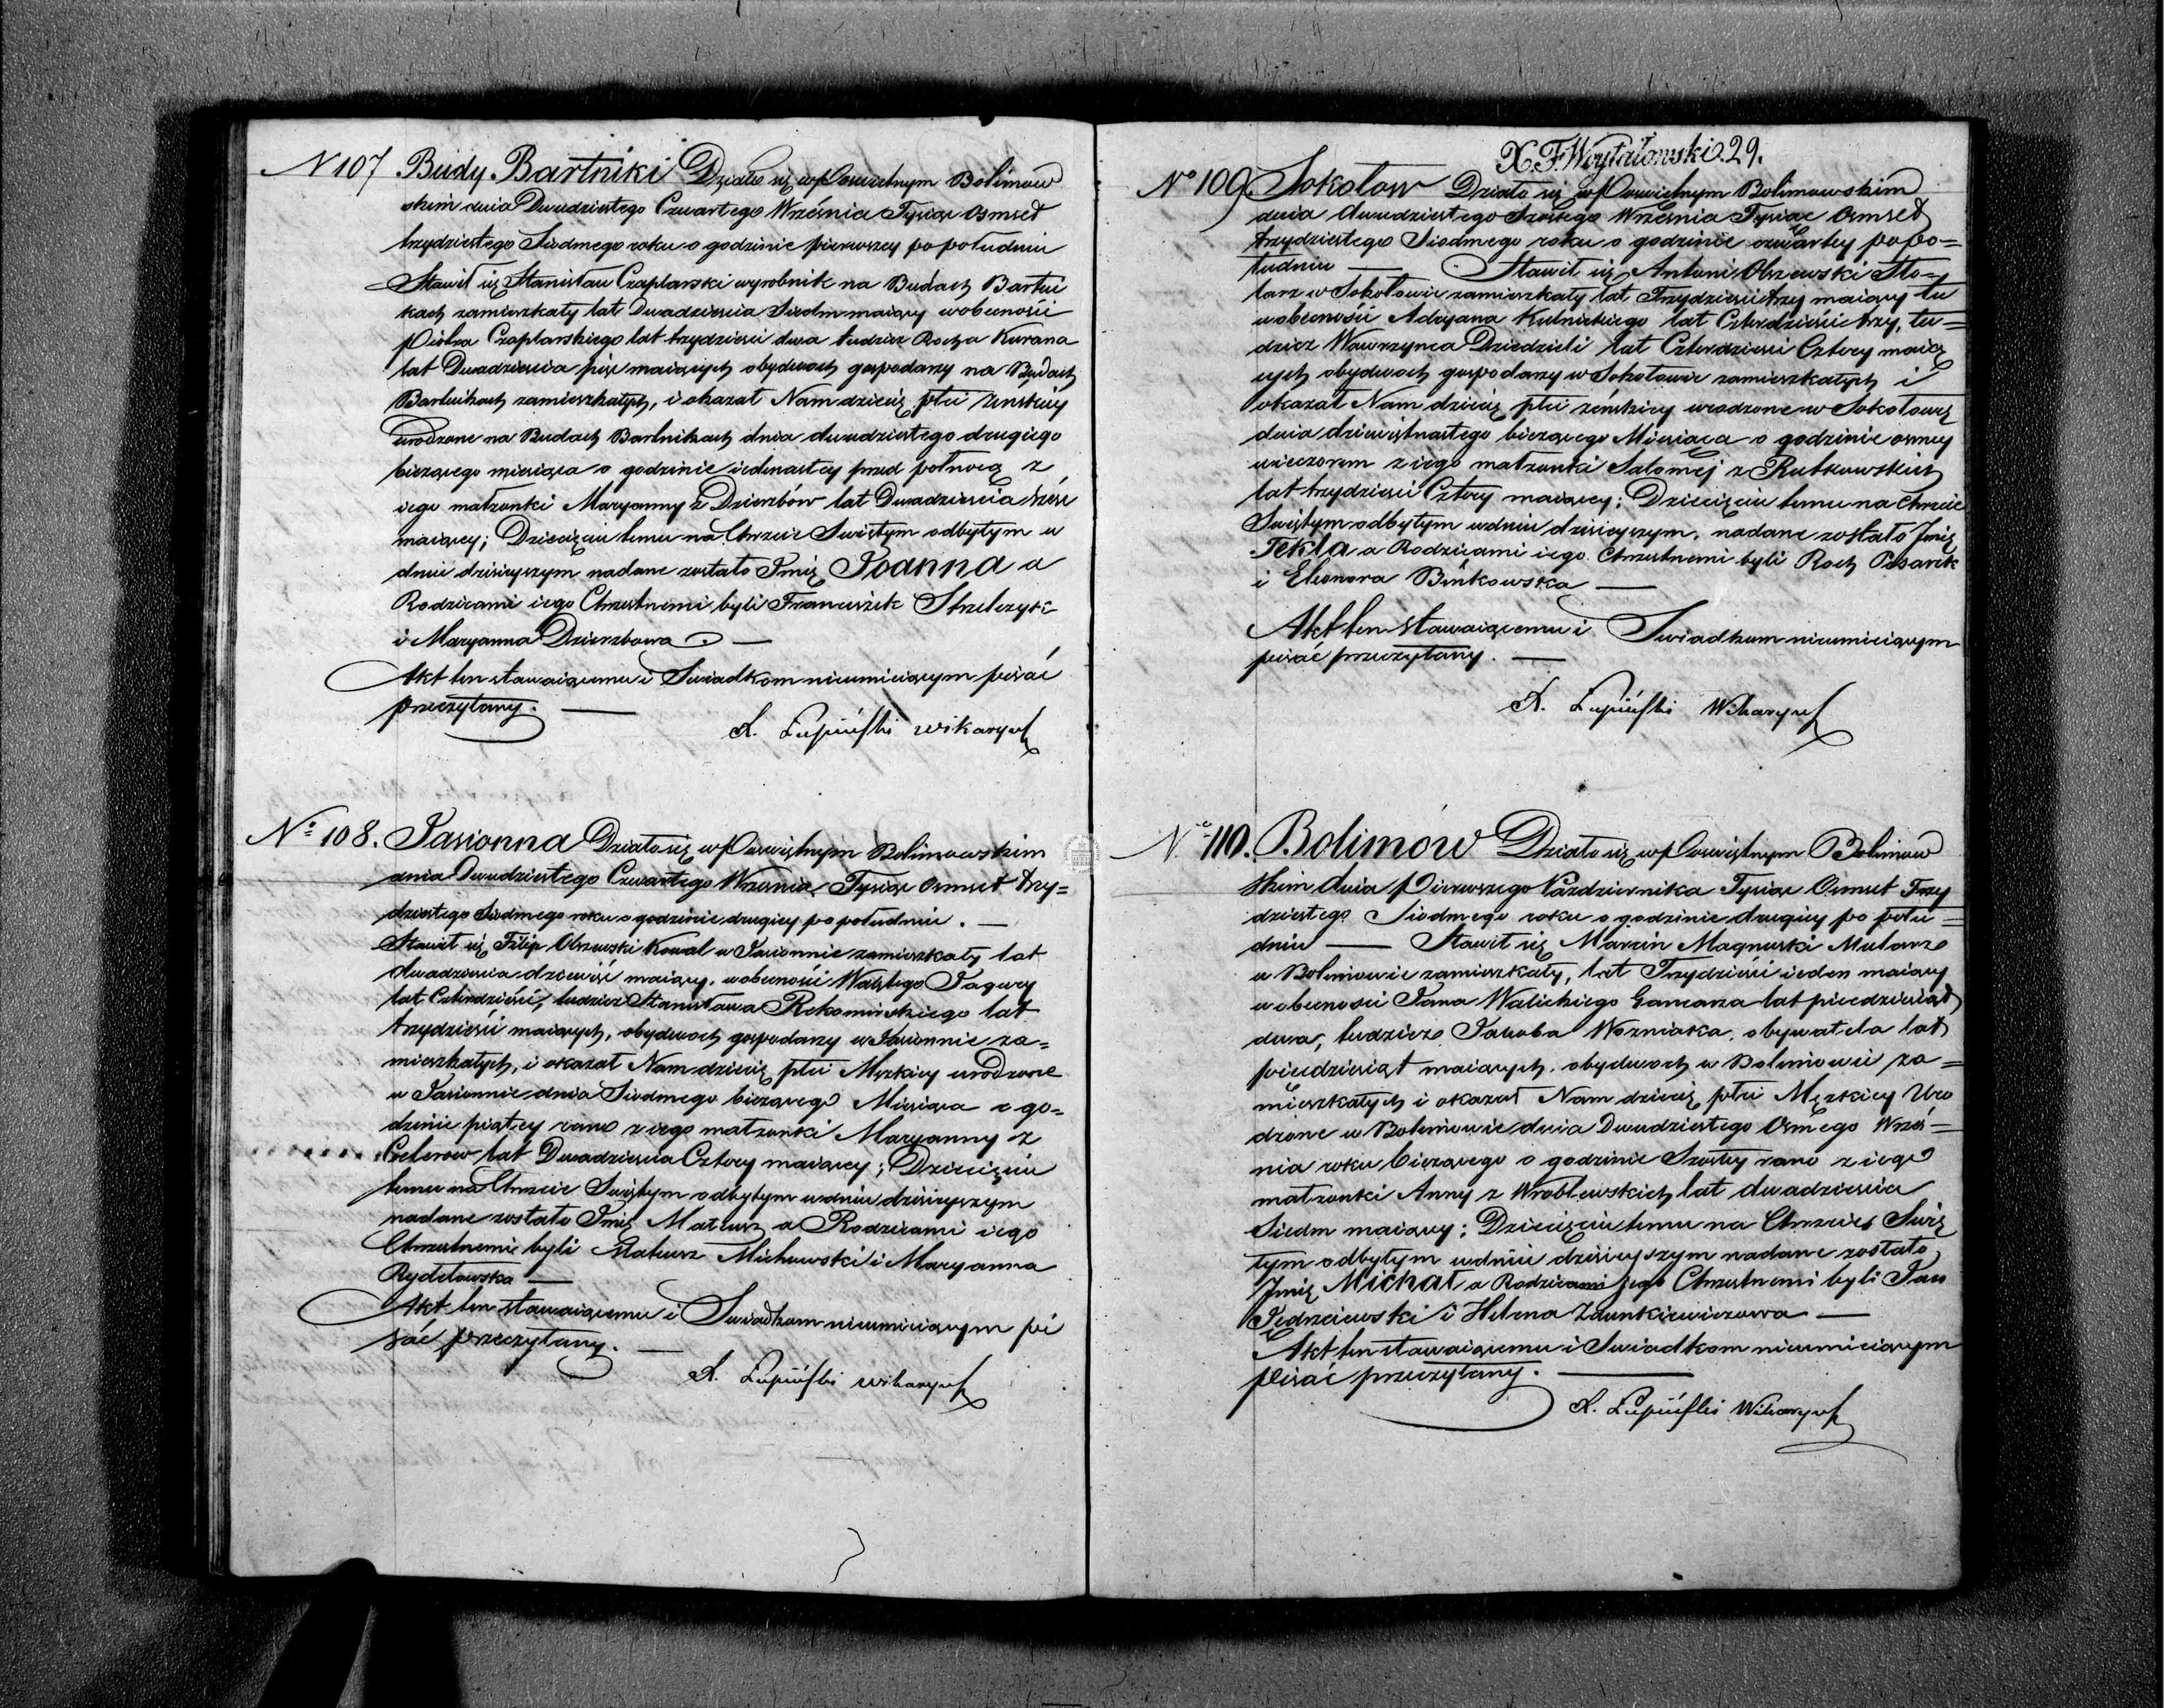 N 107 Budy Bartniki Działo się w Poświętnym Bolimow
skim dnia Dwudziestego Czwartego Września Tysiąc Osmset
trzydziestego Siodmego roku o godzinie pierwszey po południu
Stawił się Stanisław Czaplarski wyrobnik na Budach Bartni
kach zamieszkały lat Dwadzieścia Siedm maiący w obecności
Piotra Czaplarskiego lat trzydzieści dwa tudzież Rocha Kurana
lat Dwadzieścia pięć maiących obydwoch gospodarzy na Budach
Bartnikach zamieszkałych, i okazał Nam dziecię płci żenskiey
urodzone na Budach Bartnikach dnia dwudziestego drugiego
bieżącego miesiąca o godzinie iedenastey przed połnocą z
iego małżonki Maryanny z Dzierzbów lat Dwadzieścia sześć
maiącey; Dziecięciu temu na Chrzcie Swiętym odbytym w
dniu dzisieyszym nadane zostało Imię Joanna a
Rodzicami iego Chrzestnemi byli Franciszek Strzelczyk
i Maryanna Dzierzbowa
Akt ten stawaiącemu i Swiadkom nieumieiącym pisać
przeczytany.
X. Łupiński wikaryusz
N° 108. Jasionna Działo się w Poświętnym Bolimowskim
dnia Dwudziestego Czwartego Września Tysiąc Osmset trzy=
dziestego Siodmego roku o godzinie drugiey po południu.
Stawił się Filip Olszewski Kowal w Jasionnie zamieszkały lat
dwadzieścia dziewięć maiący, w obecności Walętego Jagury
lat Czterdzieści, tudzież Stanisława Rokominskiego lat
trzydzieści maiących, obydwoch gospodarzy w Jasionnie za=
mieszkałych, i okazał Nam dziecię płci Męzkiey urodzone
w Jasionnie dnia Siodmego bieżącego Miesiąca o go=
dzinie piątey rano z iego małżonki Maryanny z
lat Dwadzieścia Cztery maiącey; Dziecięciu
temu na Chrzcie Swiętym odbytym w dniu dzisieyszym
nadane zostało Imię Mateusz a Rodzicami iego
Chrzestnemi byli Mateusz Michawski i Maryanna
Rydelowska
Akt ten stawaiącemu i Swiadkom nieumieiącym pi
sać przeczytany.
X. Łupiński wikaryusz
X. F. Woytalowski. 29.
N° 109. Sokołow Działo się w Poświętnym Bolimowskim
dnia dwudziestego Szostego Września Tysiąc Osmset
trzydziestego Siodmego roku o godzinie czwartey po po=
łudniu Stawił się Antoni Olszewski Sto=
larz w Sokołowie zamieszkały lat Trzydzieści trzy maiący tu
w obecności Adryana Kulnickiego lat Czterdzieści trzy, tu=
dzież Wawrzynca Dziedzieli lat Czterdzieści Cztery maią
cych obydwoch gospodarzy w Sokołowie zamieszkałych i
okazał Nam dziecię płci żenskiey urodzone w Sokołowie
dnia dziewiętnastego bieżącego Miesiąca o godzinie osmey
wieczorem z iego małżonki Salomej z Rutkowskich
lat trzydzieści Cztery maiącey; Dziecięciu temu na Chrzcie
Swiętym odbytym w dniu dzisieyszym, nadane zostało Imię
Tekla a Rodzicami iego Chrzestnemi byli Roch Pisarek
i Eleonora Bińkowska
Akt ten stawaiącemu i Swiadkom nieumieiącym
pisać przeczytany.
X. Łupiński Wikaryusz
N° 110. Bolimów Działo się w Poświętnym Bolimow
skim dnia Pierwszego Października Tysiąc Osmset Trzy
dziestego Siodmego roku o godzinie drugiey po połu=
dniu Stawił się Marcin Magnuski Mularz
w Bolimowie zamieszkały, lat Trzydzieści ieden maiący
w obecności Jana Walickiego Garncarza lat piędziesiąt
dwa, tudzież Jakoba Wozniaka, obywatela lat
piędziesiąt maiących, obydwoch w Bolimowie za=
mieszkałych i okazał Nam dziecię płci Męzkiey Uro
dzone w Bolimowie dnia Dwudziestego Osmego Wrześ=
nia roku bieżącego o godzinie Szostey rano z iego
małżonki Anny z Wroblewskich lat dwadzieścia
Siedm maiącey; Dziecięciu temu na Chrzcie Swię
tym odbytym w dniu dzisieyszym nadane zostało
Imię Michał a Rodzicami jego Chrzestnemi byli Jan
Jędrzejewski i Helena Zdunkiewiczowa
Akt ten stawaiącemu i Swiadkom nieumieiącym
pisać przeczytany.
X. Łupiński Wikaryusz